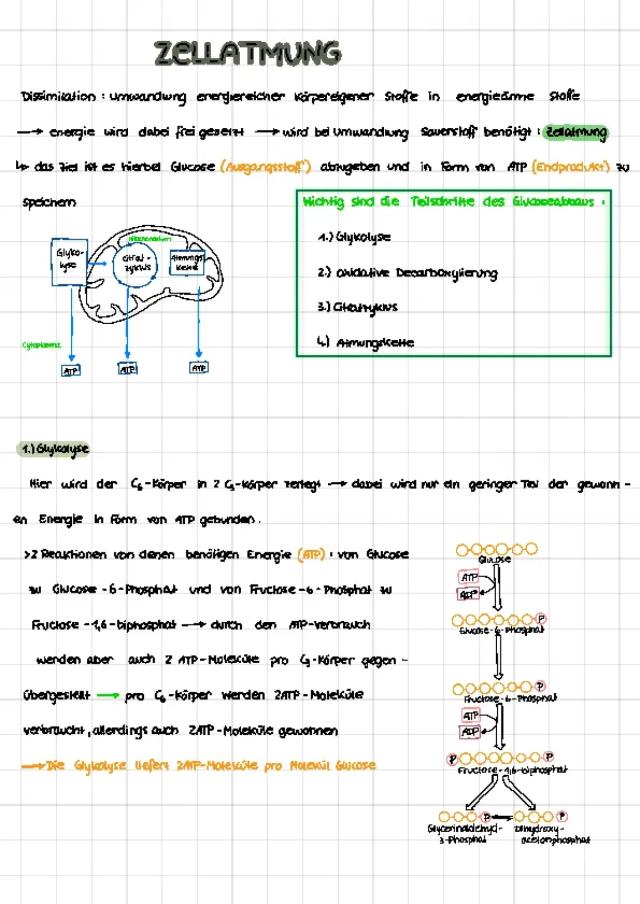 ZELLATMUNG
Dissimilation : umwandlung energiereicher körpereigener Stoffe in energieärme Stoffe
→ energie wird dabei frei gesetzt → wird bei umwandlung Sauerstoff benötigt : Zellatmung
↳ das Ziel ist es hierbei Glucose (Ausgangsstoff) abzugeben und in Form von ATP (Endprodukt) zu
speichern
Wichtig sind die Teilschritte des Glucoseabbaus :
1.) Glykolyse
2.) oxidative Decarboxylierung
3.) Citratzyklus
4.) Atmungskette
Mitochondrium
Glyko-
lyse
Citrat-
zyklus
Atmungs
kette
Cytoplasma
ATP
ATP
ATP
1.) Glykolyse
Hier wird der C₆-Körper in 2 C₃-Körper zerlegt → dabei wird nur ein geringer Teil der gewonn-
en Energie in Form von ATP gebunden.
>2 Reaktionen von denen benötigen Energie (ATP) : von Glucose
zu Glucose-6-Phosphat und von Fructose-6-Phosphat zu
Fructose-1,6-biphosphat → durch den ATP-verbrauch
werden aber auch 2 ATP-Moleküle pro C₃-Körper gegen-
übergestellt → pro C₆-Körper werden 2ATP-Moleküle
verbraucht, allerdings auch 2ATP-Moleküle gewonnen
→ Die Glykolyse liefert 2ATP-Moleküle pro Molekül Glucose
Glucose
ATP
ADP
P
Glucose-6-Phosphat
P
Fructose-6-Phosphat
ATP
ADP
P P
Fructose-1,6-biphosphat
P P
Glycerinaldehyd-
3-Phosphat
Dihydroxy-
acetonphosphat